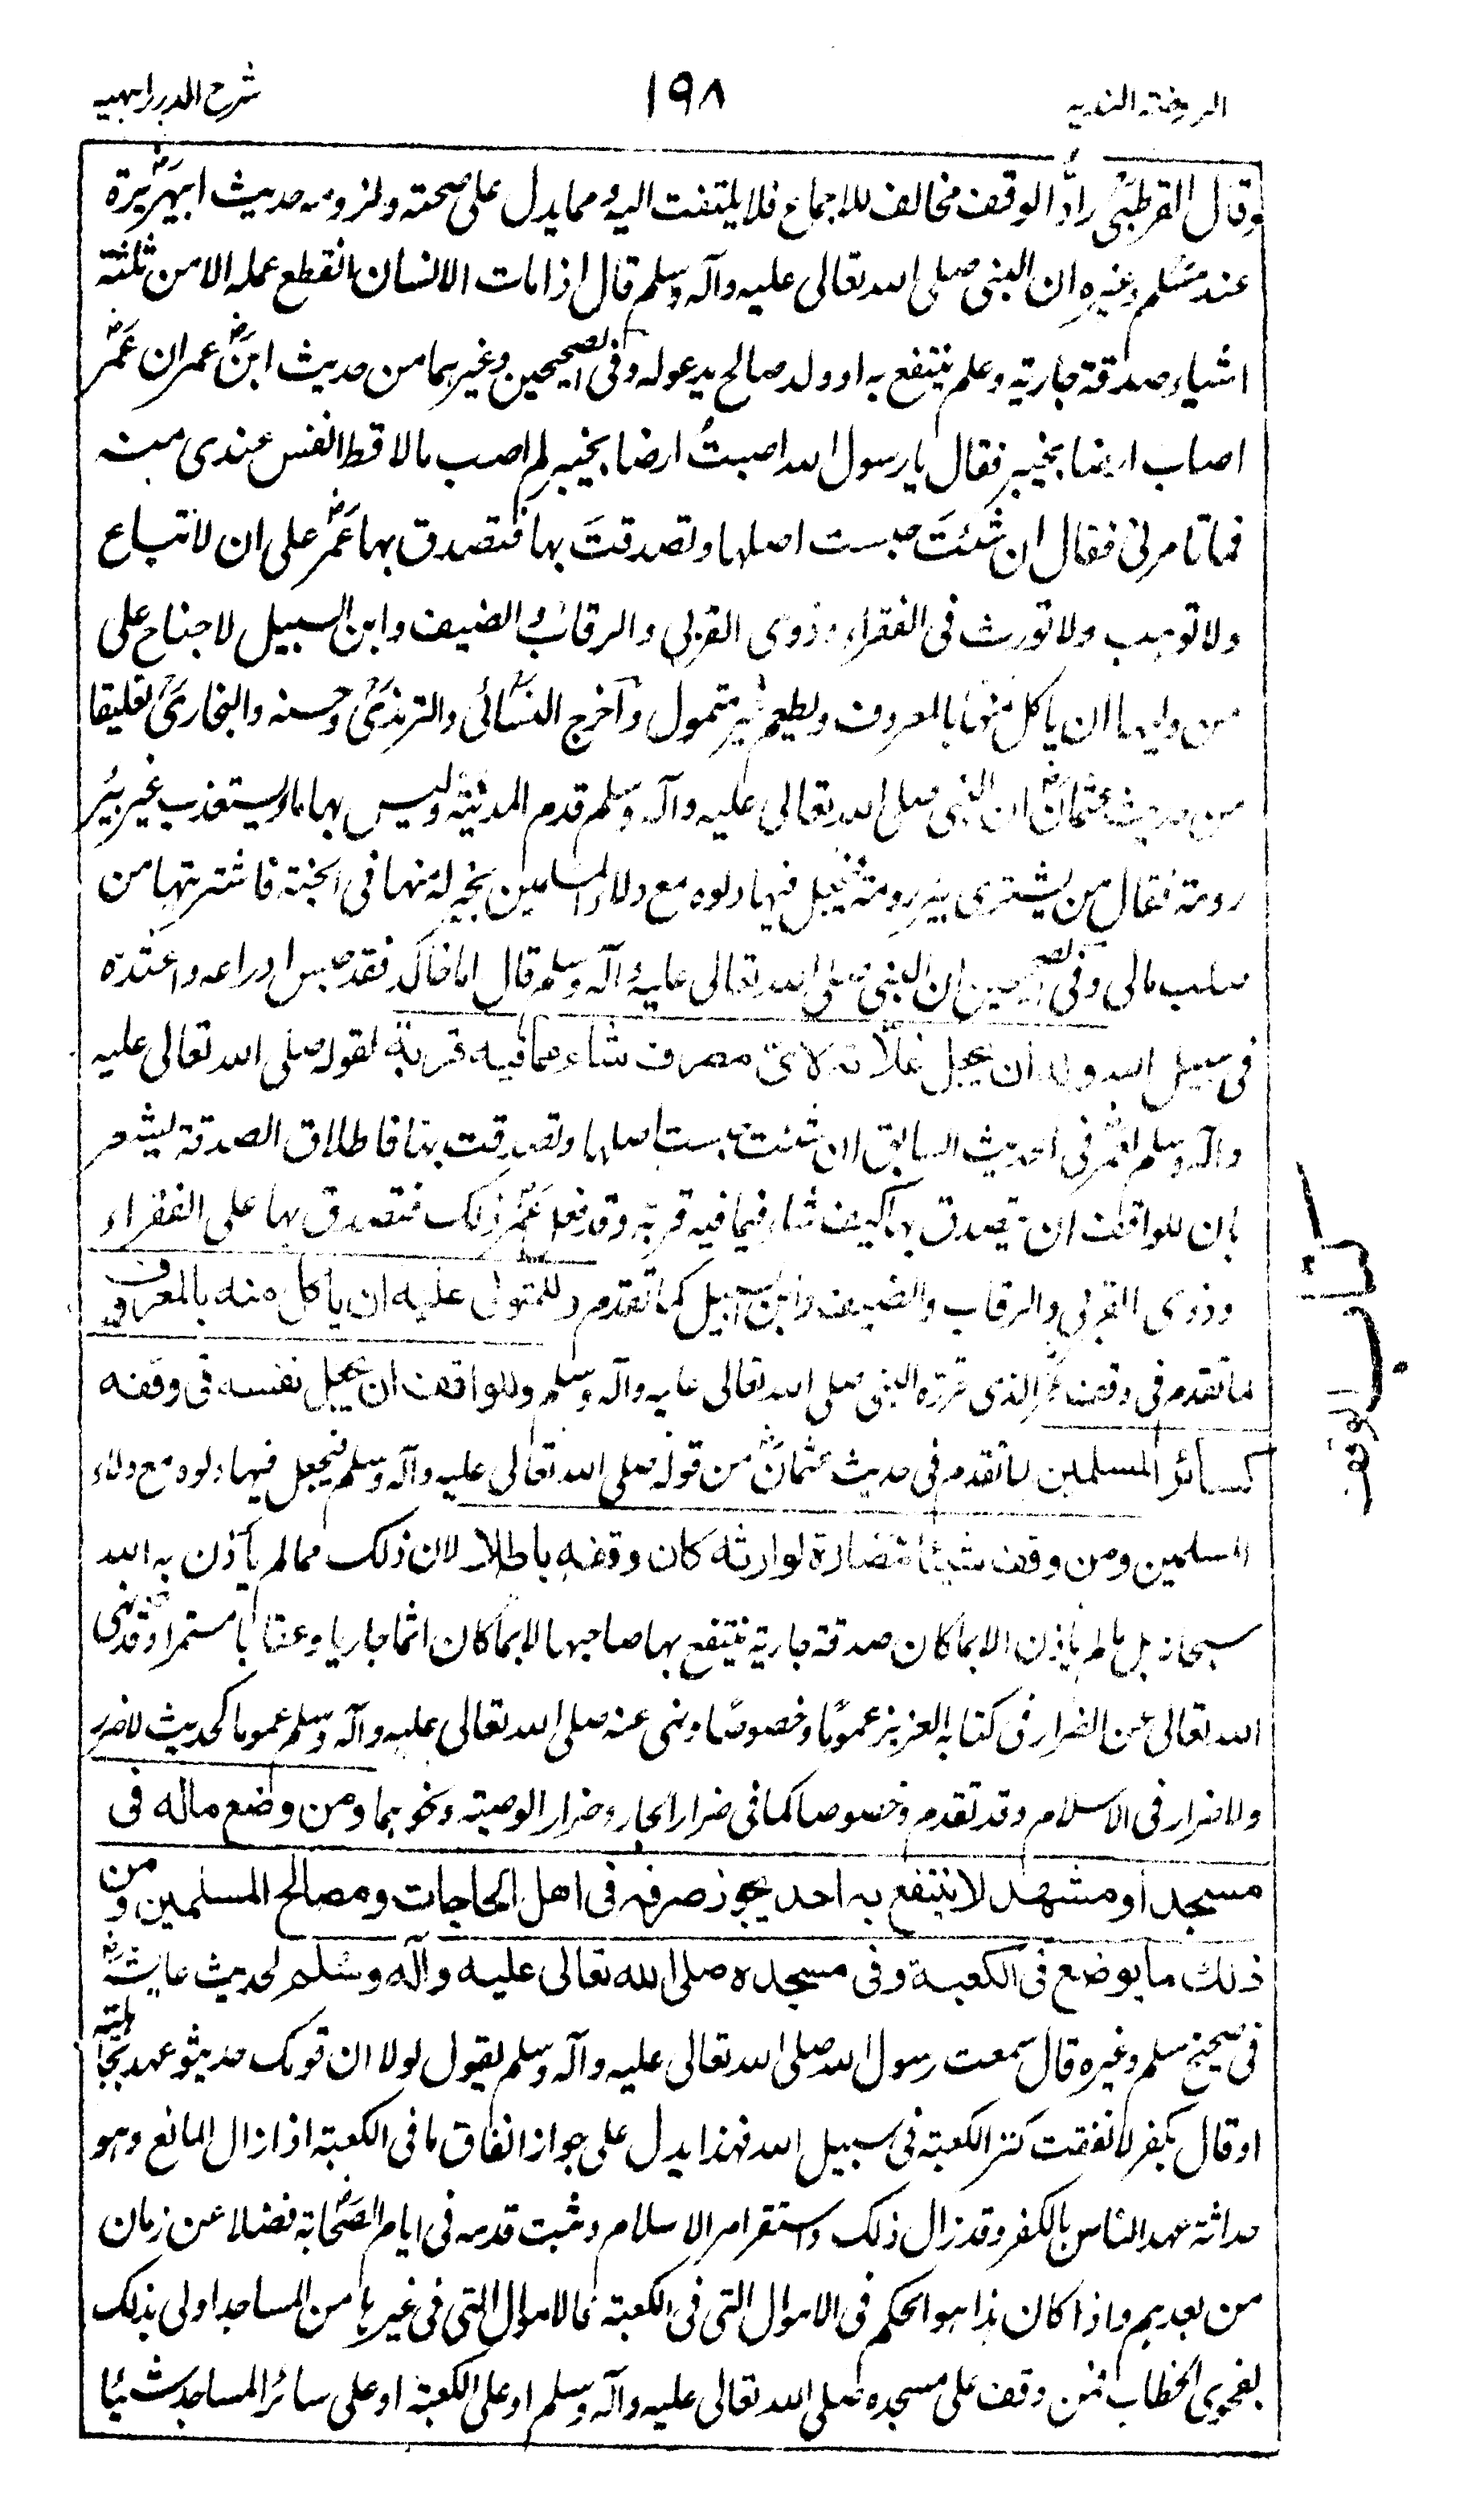 الروضة الندیه
١٩٨
شرح الدرر البهیه
وقال القرطبی رادّ الوقف مخالف للاجماع فلا یلتفت الیه ومما یدل علی صحته ولزومه حدیث ابیهریرة
عند مسلم وغیره ان النبی صلی الله تعالی علیه وآله وسلم قال اذا مات الانسان انقطع عمله الا من ثلثة
اشیاء صدقة جاریة وعلم ینتفع به او ولد صالح یدعو له وفی الصحیحین وغیرهما من حدیث ابن عمر ان عمر
اصاب ارضا بخیبر فقال یا رسول الله اصبتُ ارضا بخیبر لم اصب مالا قط انفس عندی منه
فما تامرنی فقال ان شئتَ حبست اصلها وتصدقتَ بها فتصدق بها عمر علی ان لا تباع
ولا توهب ولا تورث فی الفقراء وذوی القربی والرقاب والضیف وابن السبیل لا جناح علی
من ولیها ان یاکل منها بالمعروف ویطعم غیر متمول وآخرج النسائی والترمذی وحسنه والبخاری تعلیقا
من حدیث عثمان ان النبی صلی الله تعالی علیه وآله وسلم قدم المدینة ولیس بها ماء یستعذب غیر بئر
رومة فقال من یشتری بئر رومة فیجعل فیها دلوه مع دلاء المسلمین بخیر له منها فی الجنة فاشتریتها من
صلب مالی وفی الصحیحین ان النبی صلی الله تعالی علیه وآله وسلم قال اما خالد فقد حبس ادراعه واعتده
فی سبیل الله وله ان یجعل غلّاته لایّ مصرف شاء مما فیه قربة لقوله صلی الله تعالی علیه
وآله وسلم لعمر فی الحدیث السابق ان شئت حبست اصلها وتصدقت بها فاطلاق الصدقة یشعر
بان للواقف ان یتصدق بها کیف شاء فیما فیه قربة وقد فعل عمر ذلک فتصدق بها علی الفقراء
وذوی القربی والرقاب والضیف وابن السبیل کما تقدم وللمتولی علیه ان یاکل منه بالمعروف
لما تقدم فی وقف عمر الذی قرره النبی صلی الله تعالی علیه وآله وسلم وللواقف ان یجعل نفسه فی وقفه
کسائر المسلمین لما تقدم فی حدیث عثمان من قوله صلی الله تعالی علیه وآله وسلم فیجعل فیها دلوه مع دلاء
المسلمین ومن وقف شیئا مضارة لوارثه کان وقفه باطلا لان ذلک مما لم یاذن به الله
سبحانه بل لم یاذن الا بما کان صدقة جاریة ینتفع بها صاحبها لا بما کان اثما جاریا وعقابا مستمرا وقد نهی
الله تعالی عن الضرار فی کتابه العزیز عموما وخصوصا ونهی عنه صلی الله تعالی علیه وآله وسلم عموما کحدیث لا ضرر
ولا ضرار فی الاسلام وقد تقدم وخصوصا کما فی ضرار الجار وضرار الوصیة ونحوهما ومن وضع ماله فی
مسجد او مشهد لا ینتفع به احد یجوز صرفه فی اهل الحاجات ومصالح المسلمین ومن
ذلك ما یوضع فی الکعبة وفی مسجده صلی الله تعالی علیه وآله وسلم لحدیث عایشة
فی صحیح مسلم وغیره قال سمعت رسول الله صلی الله تعالی علیه وآله وسلم یقول لولا ان قومک حدیثو عهد بجاهلیة
او قال بکفر لانفقت کنز الکعبة فی سبیل الله فهذا یدل علی جواز انفاق ما فی الکعبة اذا زال المانع وهو
حداثة عهد الناس بالکفر وقد زال ذلک واستقر امر الاسلام وثبت قدمه فی ایام الصحابة فضلا عن زمان
من بعدهم واذا کان هذا هو الحکم فی الاموال التی فی الکعبة فالاموال التی فی غیرها من المساجد اولی بذلک
بفحوی الخطاب فمن وقف علی مسجده صلی الله تعالی علیه وآله وسلم او علی الکعبة او علی سائر المساجد شیئا
کتاب الوقف